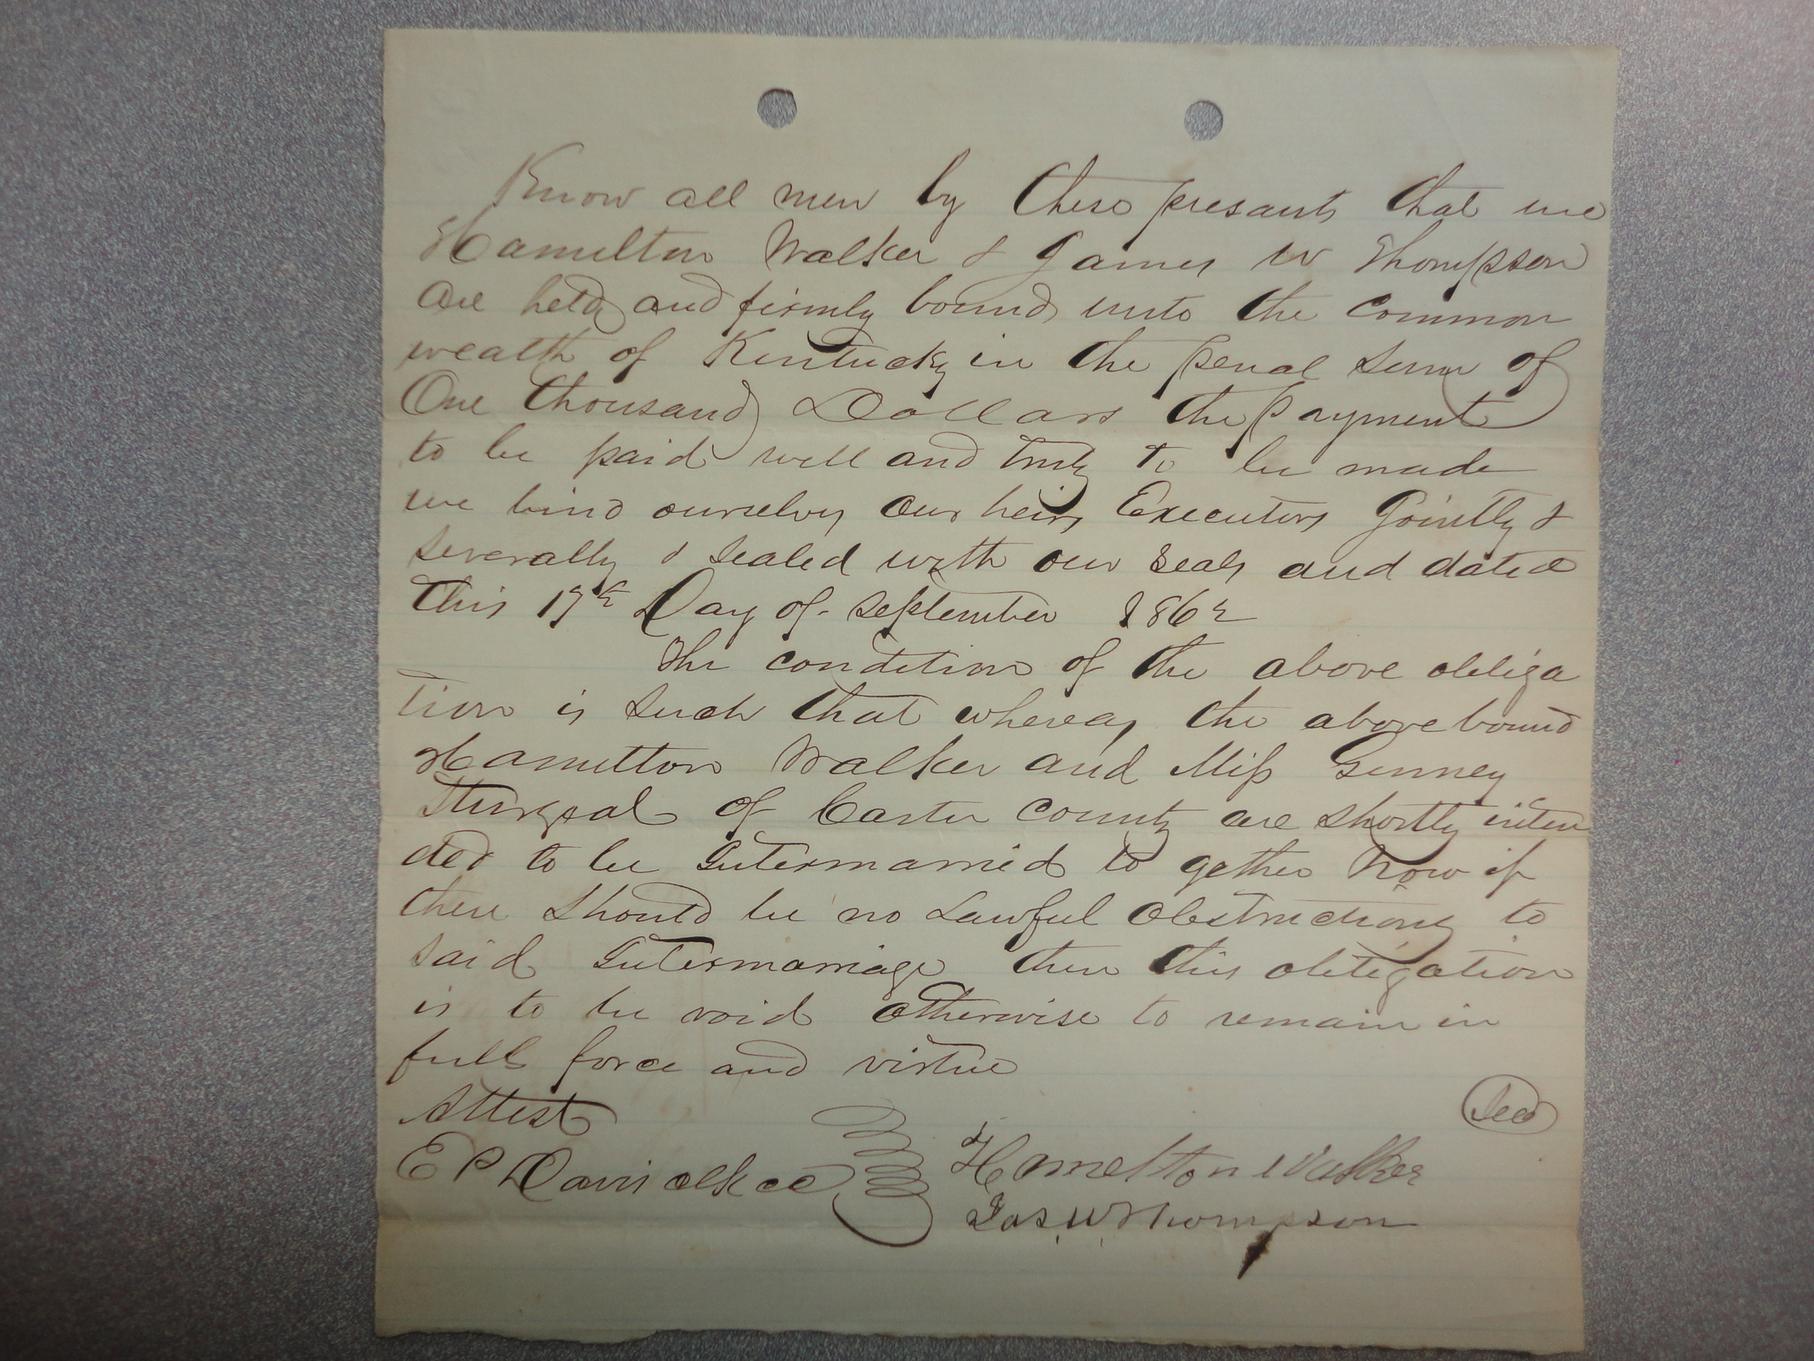 Know all men by these presants that we
Hamelton Walker & James W Thompson
are held and firmly bound unto the common
wealth of Kentucky in the penal sum of
One thousand Dollars the payment
to be paid well and truly to be made
we bind ourselves our heirs Executors Jointly &
severally & sealed with our seals and dated
this 17th Day of September 1862
The condition of the above obliga
tion is such that whereas the above bound
Hamelton Walker and Miss Ginney
of Carter county are shortly inten
ded to be Intermarried to gether Now if
there should be no Lawful obstructions to
said Intermarriage then this obligation
is to be void otherwise to remain in
full force and virtue
Attest
Seal
E P Davis clk cc
Hamelton Walker
Jas. W. Thompson